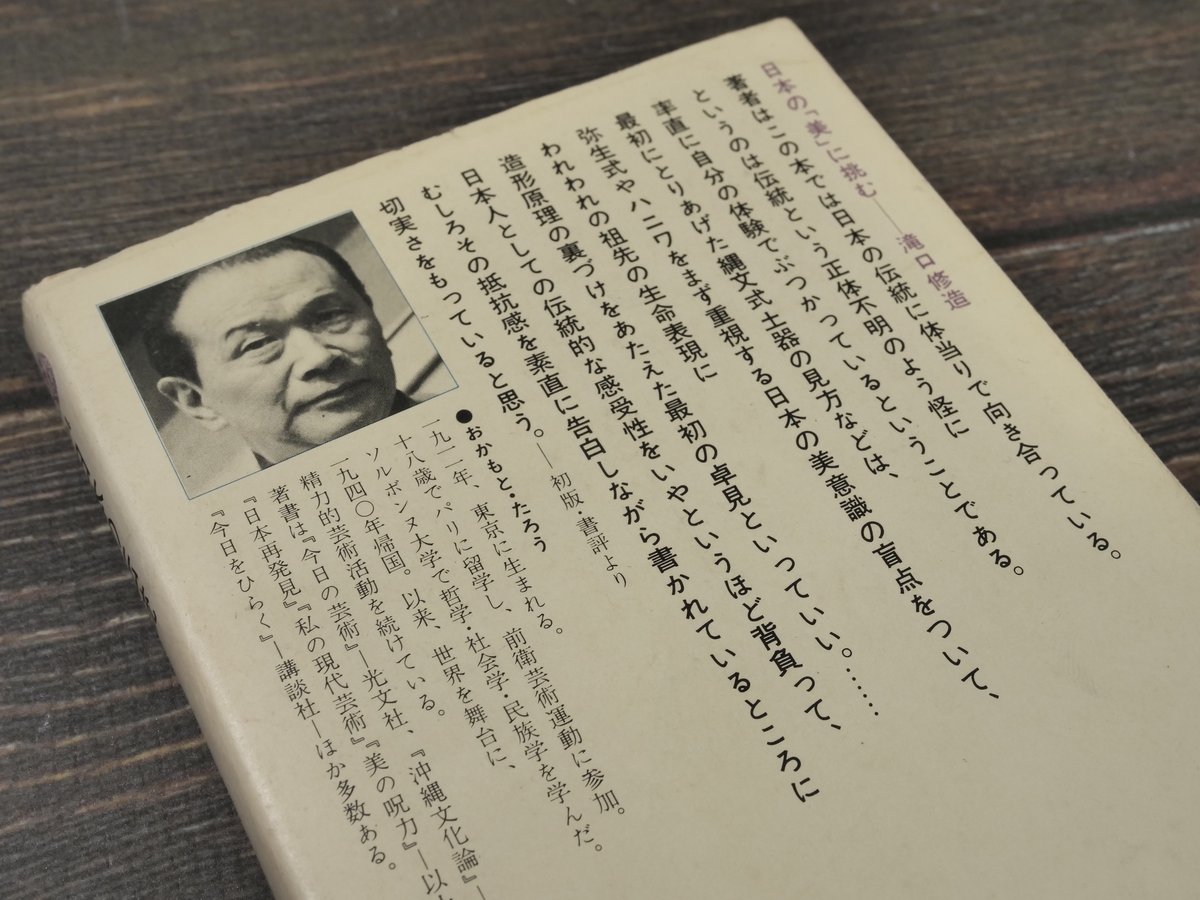 日本の「美」に挑む――滝口修造
著者はこの本では日本の伝統に体当りで向き合っている。
というのは伝統という正体不明のよう怪に
率直に自分の体験でぶつかっているということである。
最初にとりあげた縄文式土器の見方などは、
弥生式やハニワをまず重視する日本の美意識の盲点をついて、
われわれの祖先の生命表現に
造形原理の裏づけをあたえた最初の卓見といっていい。……
日本人としての伝統的な感受性をいやというほど背負って、
むしろその抵抗感を素直に告白しながら書かれているところに
切実さをもっていると思う。――初版・書評より
●おかもと・たろう
一九一一年、東京に生まれる。
十八歳でパリに留学し、前衛芸術運動に参加。
ソルボンヌ大学で哲学・社会学・民族学を学んだ。
一九四〇年帰国。以来、世界を舞台に、
精力的芸術活動を続けている。
著書は『今日の芸術』―光文社、『沖縄文化論』―
『日本再発見』『私の現代芸術』『美の呪力』―以
『今日をひらく』―講談社―ほか多数ある。